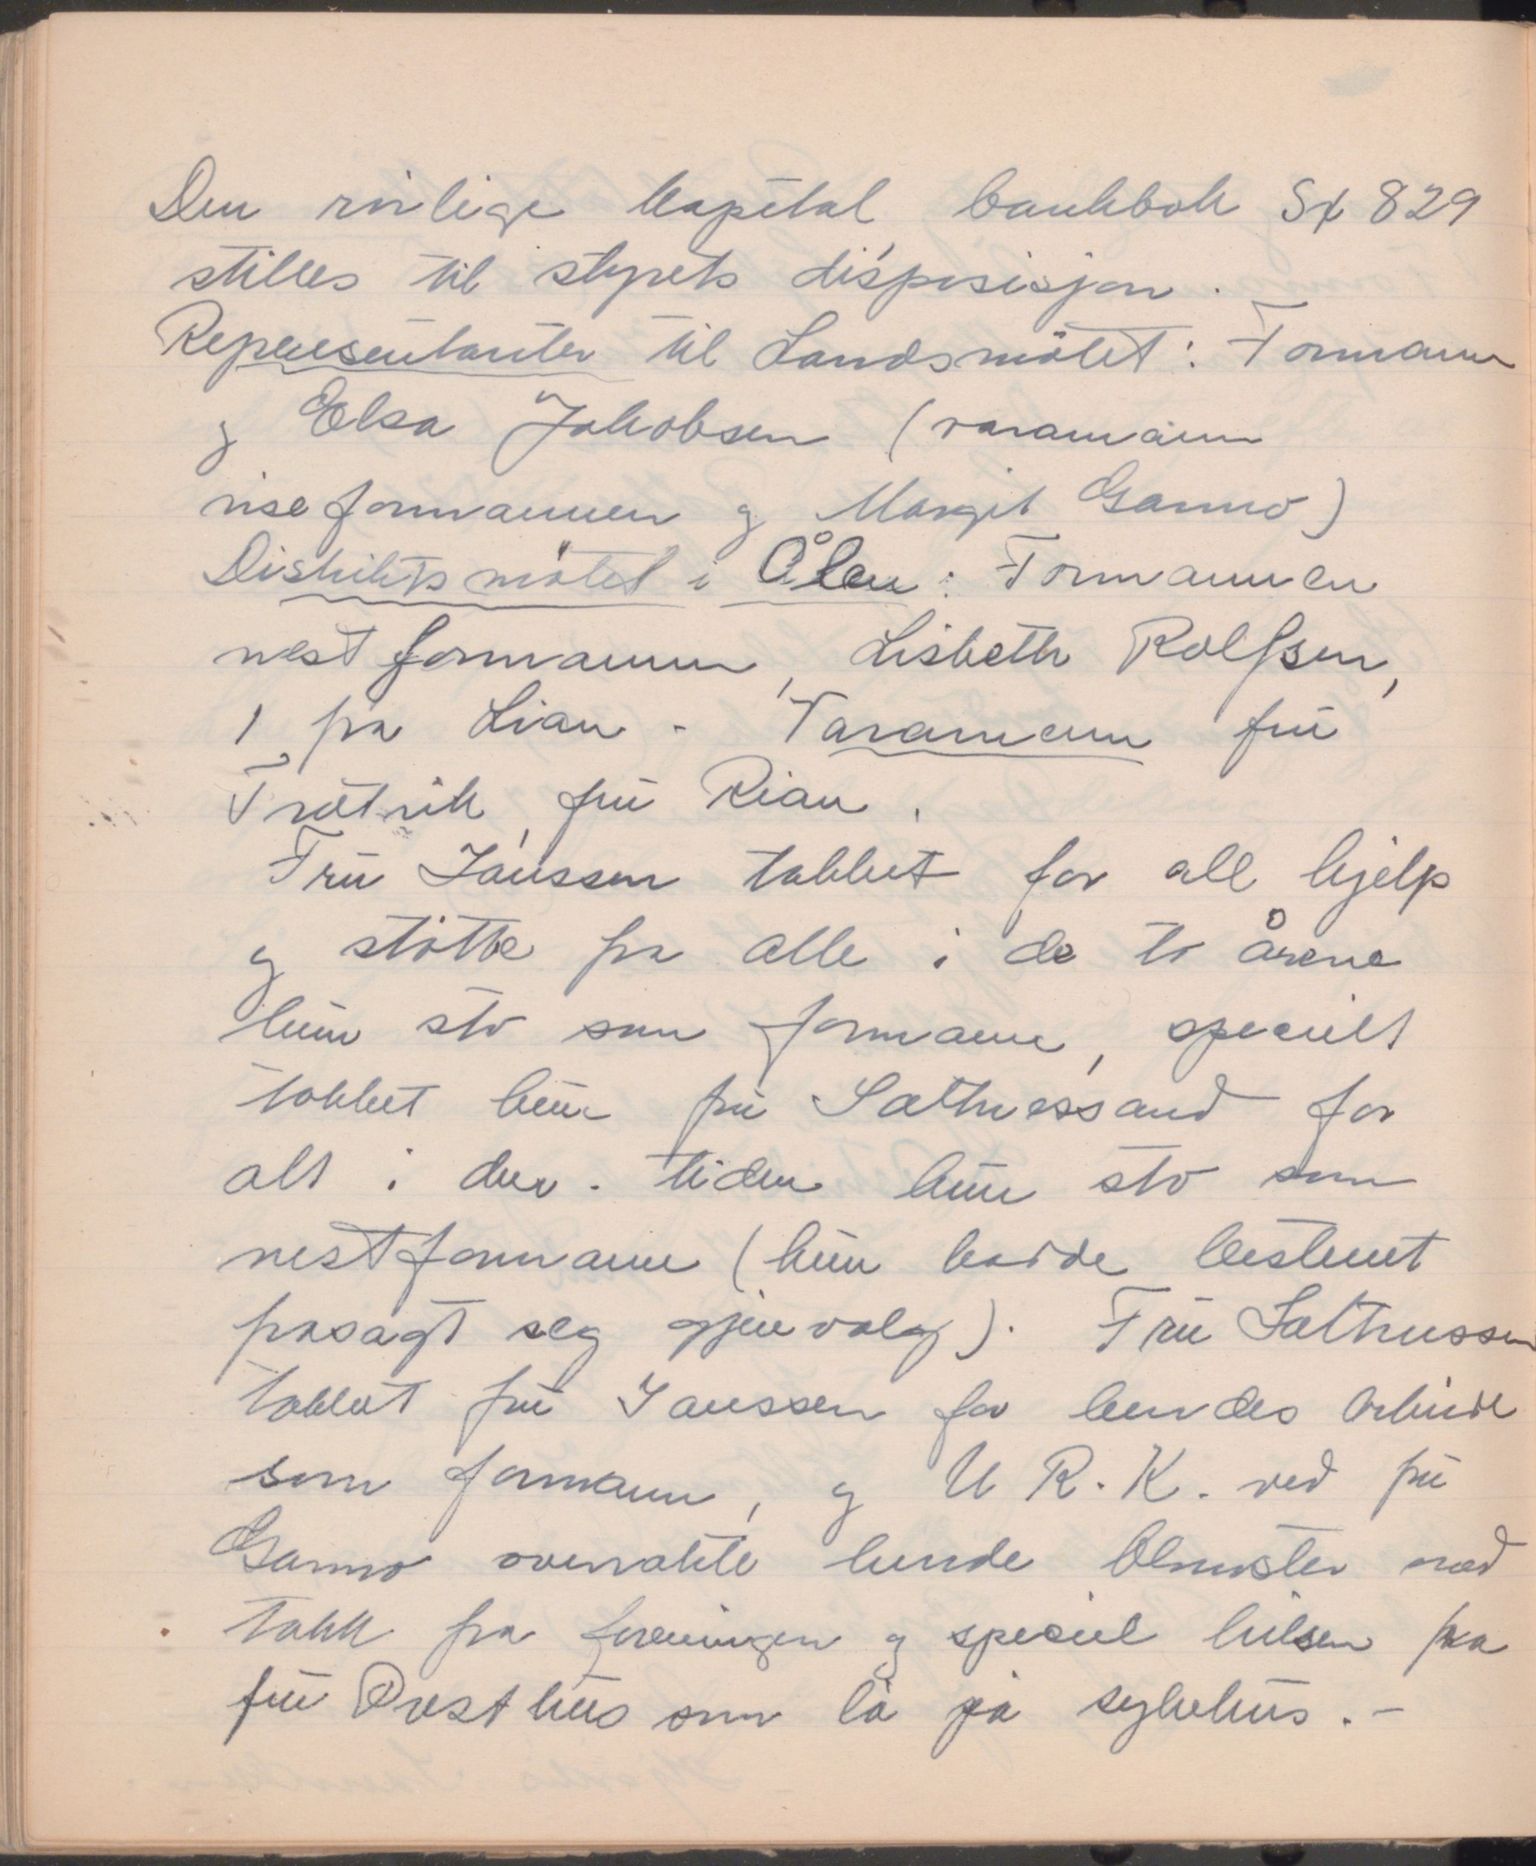 Den rinlige kapital bankbok Sp 829
stilles til styrets disposisjon.
Representanter til Landsmötet: Formann
og Elsa Jakobsen (varamann
viseformannen og Margit Garmo)
Distriktsmötet i Ålen: Formannen
nestformann, Lisbeth Rolfsen,
1 fra Lian - Varamann fru
Trötvik, fru Rian.
Fru Janssen takket for all hjelp
og stötte fra alle i de to årene
hun sto som formann, specielt
takket hun fru Sæthressand for
alt i den tiden hun sto som
nestformann (hun hadde bestemt
frasagt seg gjenvalg). Fru Sæthressen
takket fru Janssen for hendes arbeide
som formann, og U R.K. ved fru
Garmo overrakte hende blomster med
takk fra foreningen og speciel hilsen fra
fru Presthus som lå på sykehus.-